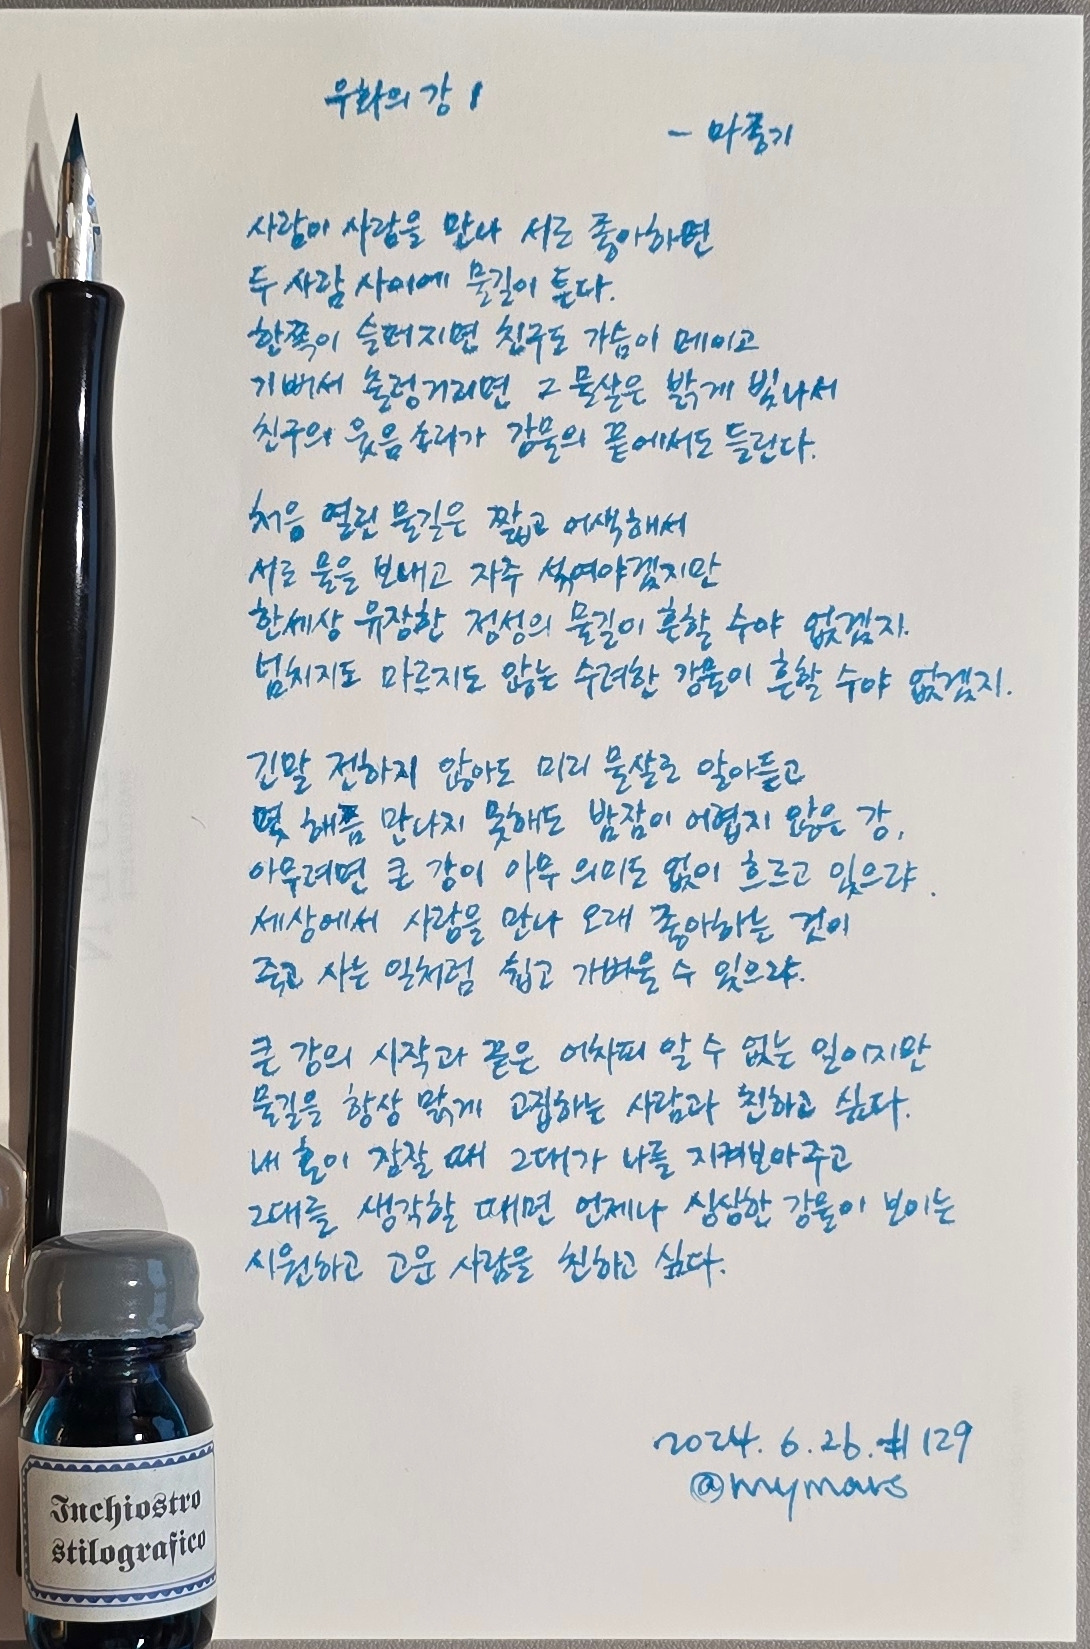 우화의 강 1
- 마종기
사람이 사람을 만나 서로 좋아하면
두 사람 사이에 물길이 튼다.
한쪽이 슬퍼지면 친구도 가슴이 메이고
기뻐서 출렁거리면 그 물살은 밝게 빛나서
친구의 웃음소리가 강물의 끝에서도 들린다.
처음 열린 물길은 짧고 어색해서
서로 물을 보내고 자주 섞여야겠지만
한세상 유장한 정성의 물길이 흔할 수야 없겠지.
넘치지도 마르지도 않는 수려한 강물이 흔할 수야 없겠지.
긴말 전하지 않아도 미리 물살로 알아듣고
몇 해쯤 만나지 못해도 밤잠이 어렵지 않은 강,
아무려면 큰 강이 아무 의미도 없이 흐르고 있으랴.
세상에서 사람을 만나 오래 좋아하는 것이
죽고 사는 일처럼 쉽고 가벼울 수 있으랴.
큰 강의 시작과 끝은 어차피 알 수 없는 일이지만
물길을 항상 맑게 고집하는 사람과 친하고 싶다.
내 혼이 잠잘 때 그대가 나를 지켜보아주고
그대를 생각할 때면 언제나 싱싱한 강물이 보이는
시원하고 고운 사람을 친하고 싶다.
2024. 6. 26. #129
@mymars
Inchiostro
stilografico